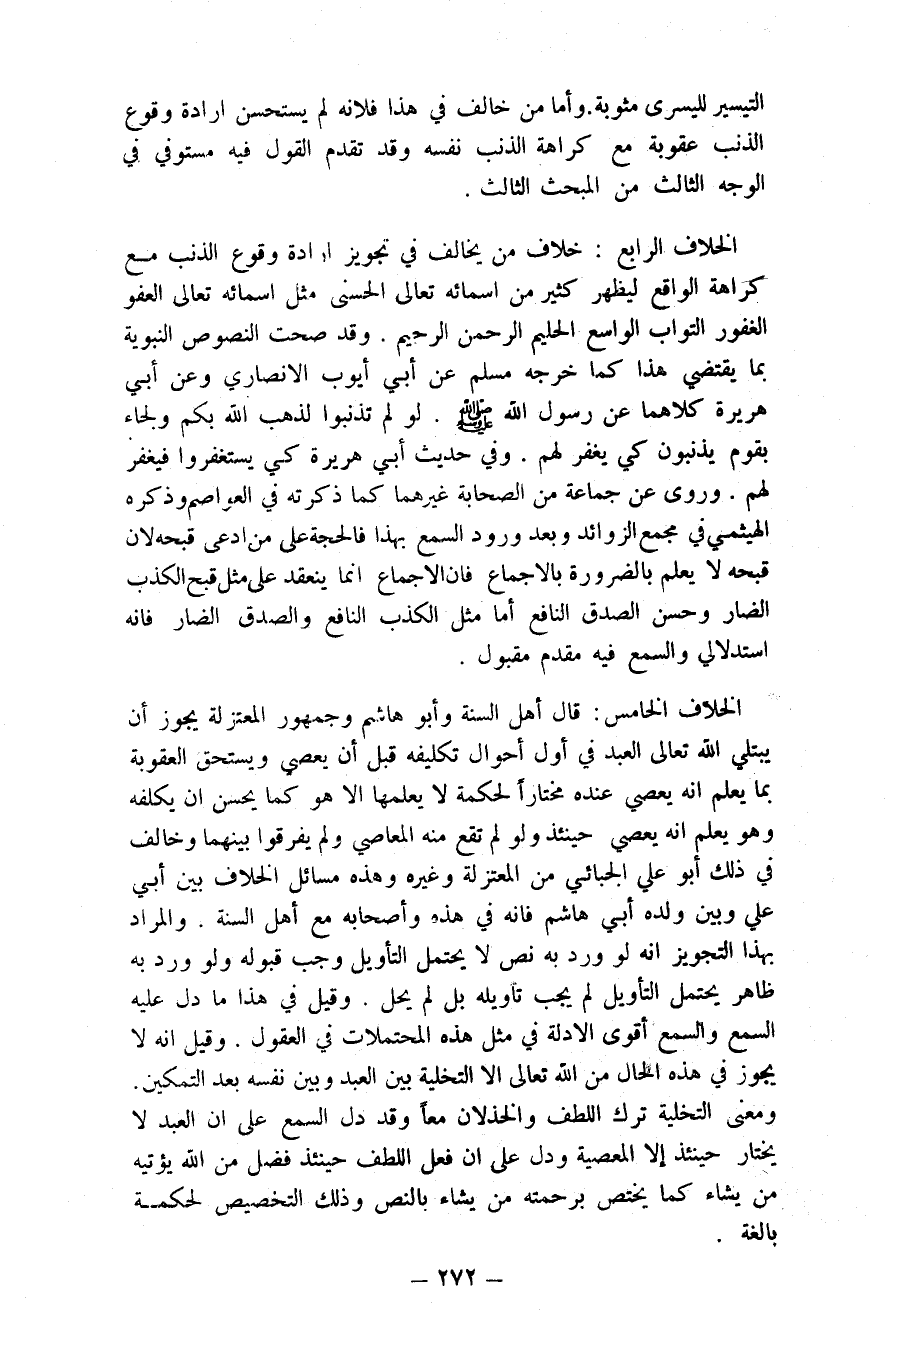 التيسير لليسرى مثوبة.وأما من خالف في هذا فلانه لم يستحسن ارادة وقوع
الذنب عقوبة مع كراهة الذنب نفسه وقد تقدم القول فيه مستوفي في
الوجه الثالث من المبحث الثالث .
الخلاف الرابع : خلاف من يخالف في تجويز ارادة وقوع الذنب مع
كراهة الواقع ليظهر كثير من اسمائه تعالى الحسنى مثل اسمائه تعالى العفو
الغفور التواب الواسع الحليم الرحمن الرحيم . وقد صحت النصوص النبوية
بما يقتضي هذا كما خرجه مسلم عن أبي أيوب الانصاري وعن أبي
هريرة كلاهما عن رسول الله ﷺ . لو لم تذنبوا لذهب الله بكم ولجاء
بقوم يذنبون كي يغفر لهم . وفي حديث أبي هريرة كي يستغفروا فيغفر
لهم . وروى عن جماعة من الصحابة غيرهما كما ذكرته في العواصم وذكره
الهيثمي في مجمع الزوائد وبعد ورود السمع بهذا فالحجة على من ادعى قبحه لان
قبحه لا يعلم بالضرورة بالاجماع فان الاجماع انما ينعقد على مثل قبح الكذب
الضار وحسن الصدق النافع أما مثل الكذب النافع والصدق الضار فانه
استدلالي والسمع فيه مقدم مقبول .
الخلاف الخامس : قال أهل السنة وأبو هاشم وجمهور المعتزلة يجوز أن
يبتلي الله تعالى العبد في أول أحوال تكليفه قبل أن يعصي ويستحق العقوبة
بما يعلم انه يعصي عنده مختاراً لحكمة لا يعلمها الا هو كما يحسن ان يكلفه
وهو يعلم انه يعصي حينئذ ولو لم تقع منه المعاصي ولم يفرقوا بينهما وخالف
في ذلك أبو علي الجبائي من المعتزلة وغيره وهذه مسائل الخلاف بين أبي
علي وبين ولده أبي هاشم فانه في هذه وأصحابه مع أهل السنة . والمراد
بهذا التجويز انه لو ورد به نص لا يحتمل التأويل وجب قبوله ولو ورد به
ظاهر يحتمل التأويل لم يجب تأويله بل لم يحل . وقيل في هذا ما دل عليه
السمع والسمع أقوى الادلة في مثل هذه المحتملات في العقول . وقيل انه لا
يجوز في هذه الحال من الله تعالى الا التخلية بين العبد وبين نفسه بعد التمكين.
ومعنى التخلية ترك اللطف والخذلان معاً وقد دل السمع على ان العبد لا
يختار حينئذ إلا المعصية ودل على ان فعل اللطف حينئذ فضل من الله يؤتيه
من يشاء كما يختص برحمته من يشاء بالنص وذلك التخصيص لحكمة
بالغة .
– ٢٧٢ –